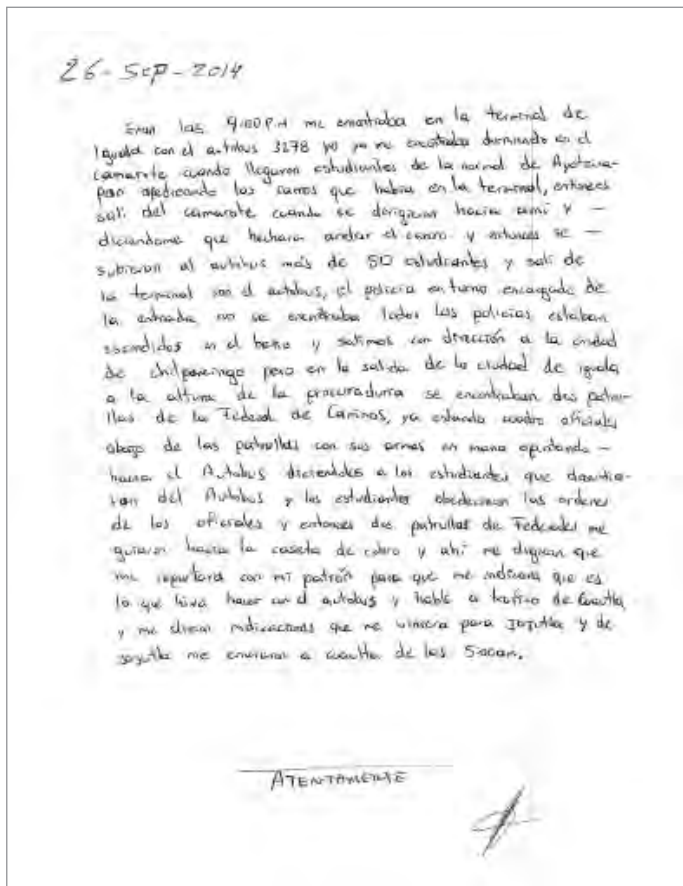 26-Sep-2014
Eran las 9:00 P.M me encotraba en la terminal de
Iguala con el autobus 3278 yo ya me encotraba durmiendo en el
camarote cuando llegaron estudiantes de la normal de Ayotzina-
pan apedreando los carros que habia en la terminal, entonces
sali del camarote cuando se dirigieron hacia ami y -
diciendome que hechara andar el carro y entonces se -
subieron al autobus más de 50 estudiantes y sali de
la terminal con el autobus, el policia en turno encargado de
la entrada no se encontraba todos los policias estaban
escondidos en el baño y salimos con dirección a la ciudad
de chilpancingo pero en la salida de la ciudad de iguala
a la altura de la procuraduria se encontraban dos patru-
llas de la Federal de Caminos, ya estando cuatro oficiales
abajo de las patrullas con sus armas en mano apuntando -
hacia el Autobus diciendoles a los estudiantes que
del Autobus y los estudiantes obedecieron las ordenes
de los oficiales y entonces dos patrullas de Federales me
guiaron hacia la caseta de cobro y ahi me digeran que
me reportara con mi patrón para que me indicara que es
lo que hiva hacer con el autobus y hable a trafico de Cuautla
y me dieron indicaciones que me viniera para Jojutla y de
jojutla me enviaron a cuautla de las 5:00am.
ATENTAMENTE